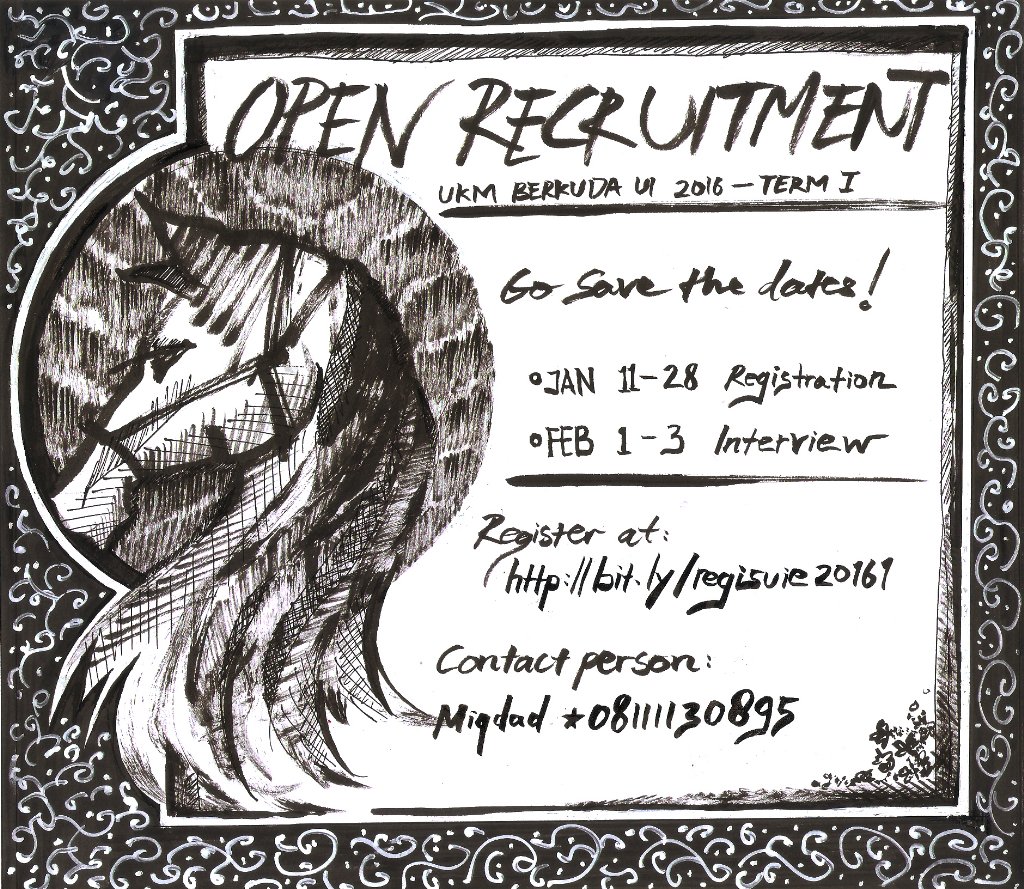 OPEN RECRUITMENT
UKM BERKUDA UI 2016 – TERM I
Go Save the dates!
• JAN 11-28 Registration
• FEB 1-3 Interview
Register at:
http://bit.ly/regisuie20161
Contact person:
Miqdad * 08111130895